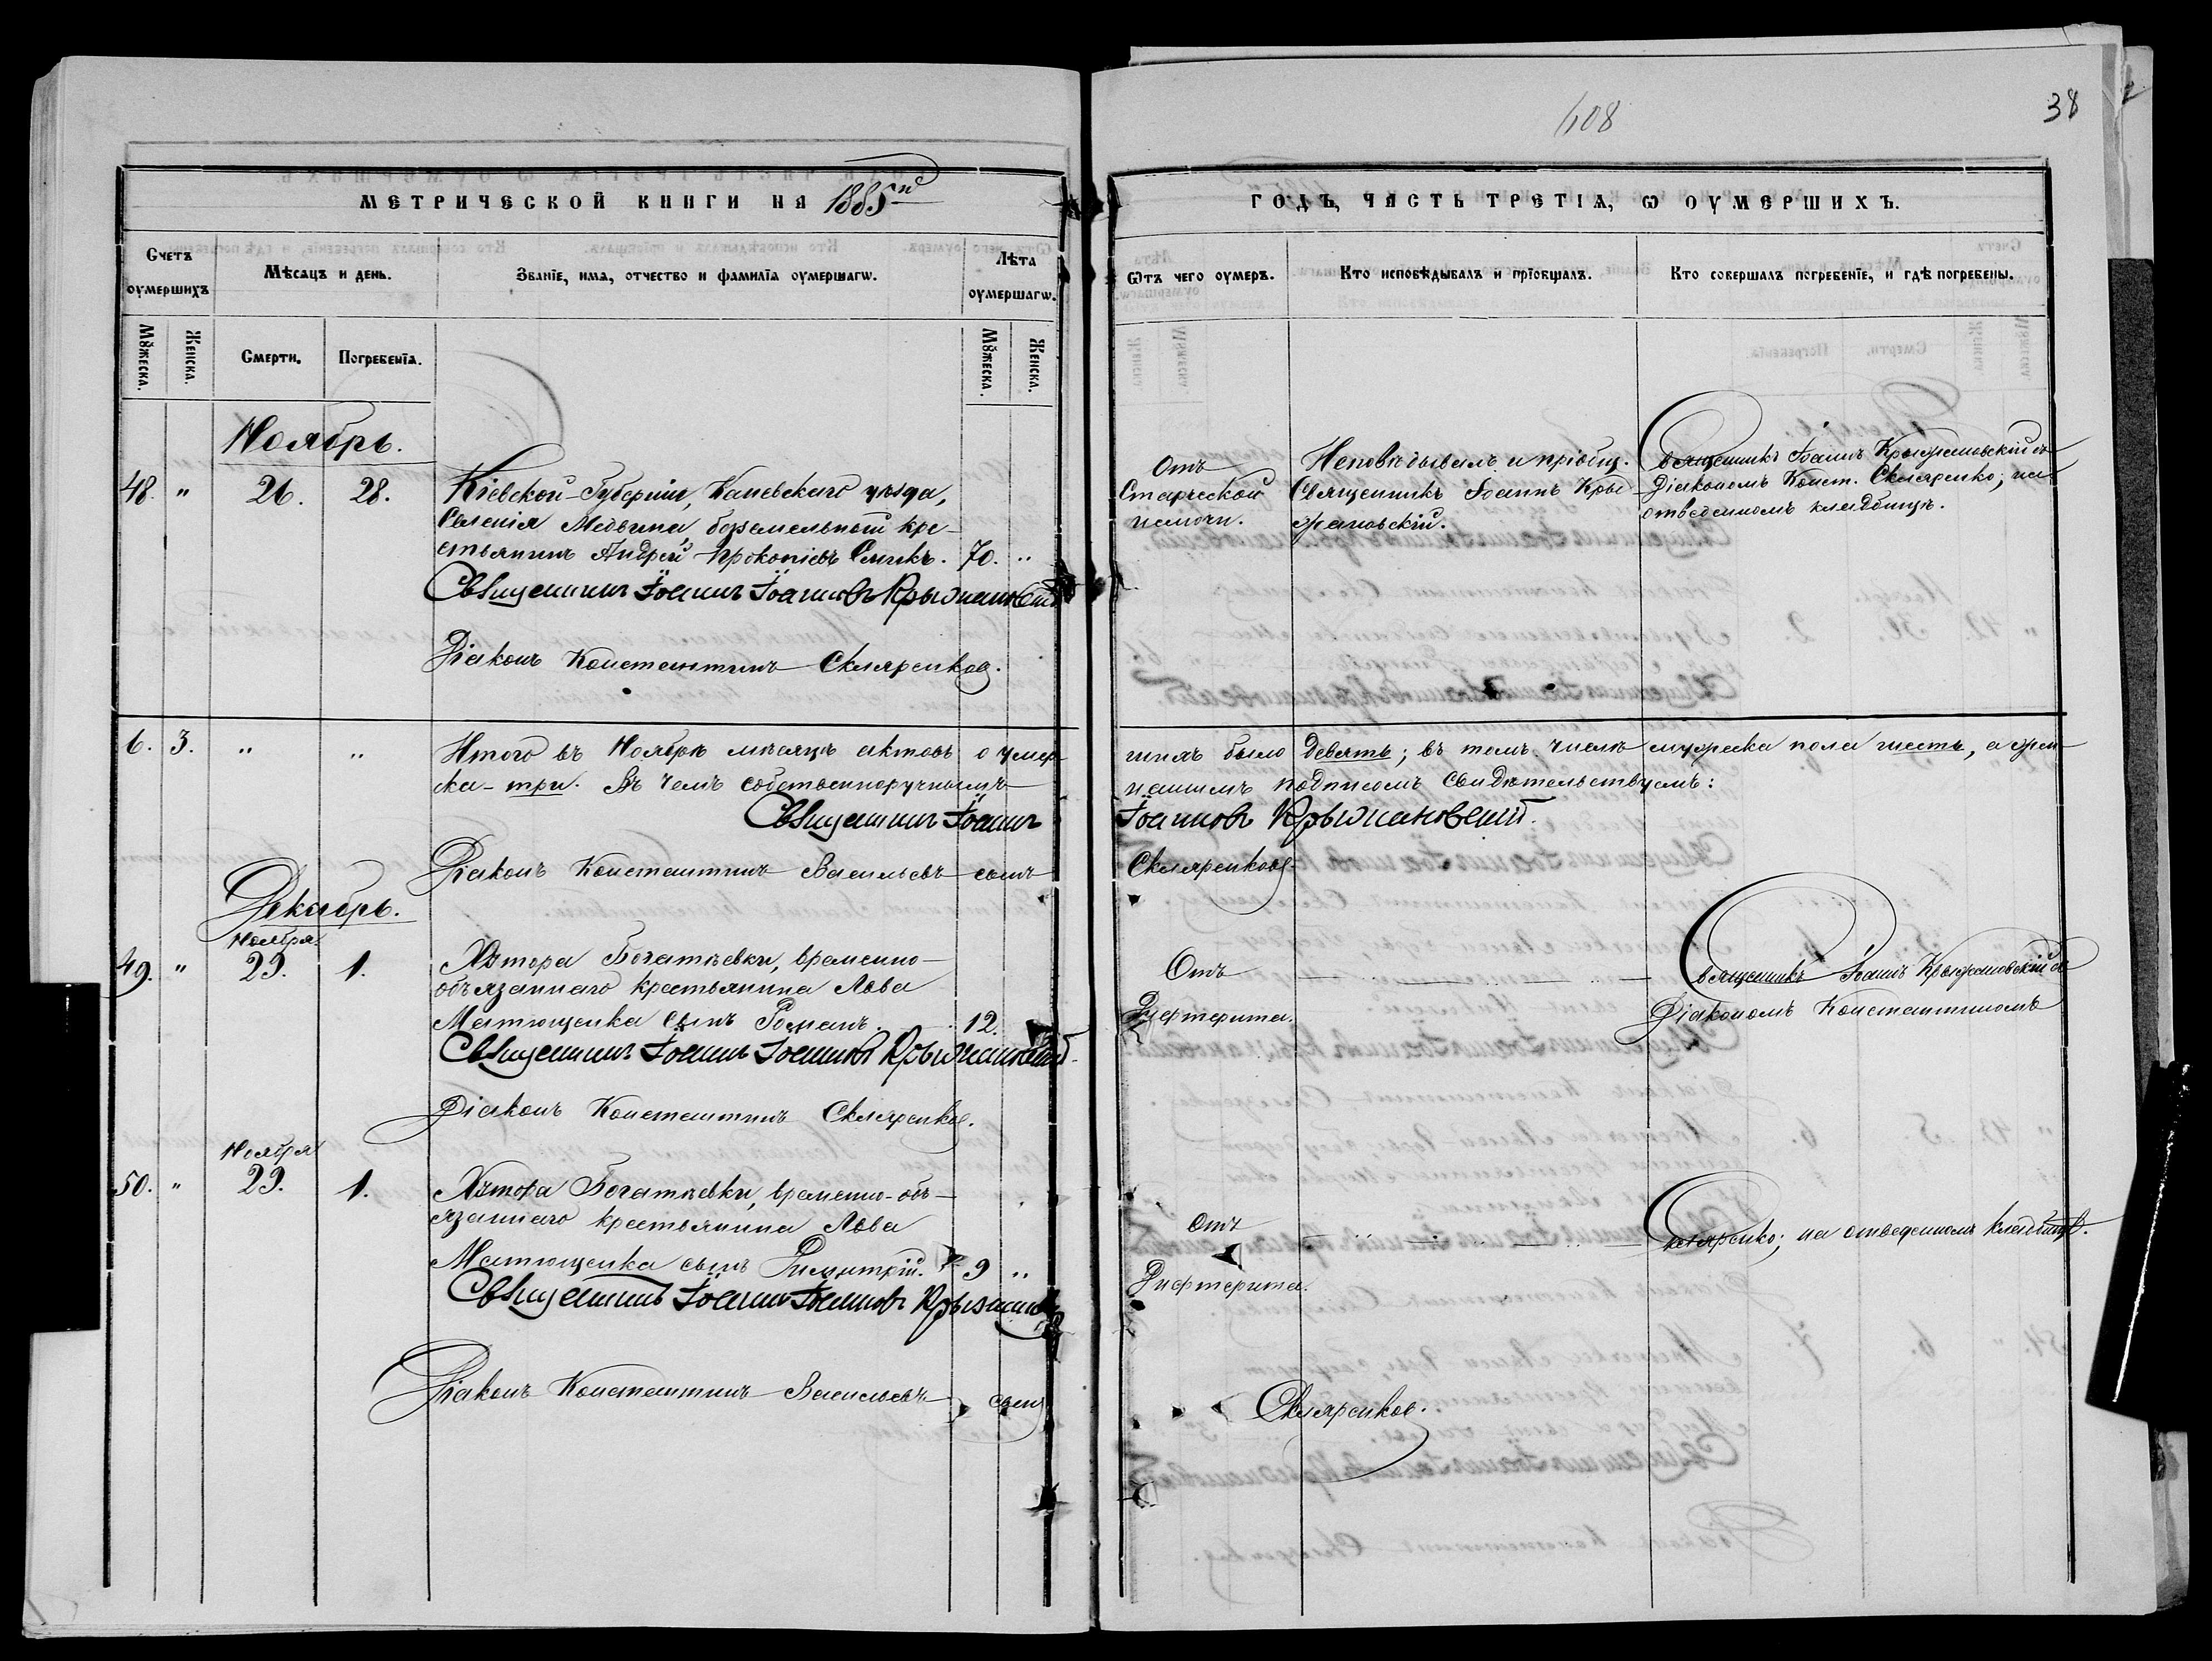 38
108
МЕТРИЧЕСКОЙ КНИГИ НА 1885й
ГОДЪ, ЧАСТЬ ТРЕТІА, Ѡ ОУМЕРШИХЪ.
Счетъ оумершихъ
Мѣсацъ и день.
Званїе, има, отчество и фамилїа оумершагѡ.
Лѣта оумершагѡ.
Ѿтъ чего оумеръ.
Кто исповѣдывалъ и прїобщалъ.
Кто совершалъ погребенїе, и гдѣ погребены.
Мꙋжеска.
Женска.
Смерти.
Погребенїа.
Мꙋжеска.
Женска.
Ноябрь.
48. " 26. 28.
Кіевской Губерніи, Каневскаго уѣзда,
Селенія Медвина, безземельный кре-
стьянинъ Андрей Прокопіевъ 70. "
Священникъ Іоаннъ Іоанновъ Крыжановскій
Діаконъ Константинъ Скляренковъ.
Отъ
Старческой
немочи.
Исповѣдывалъ и пріобщ.
Священникъ Іоаннъ Кры-
жановскій.
Священникъ Іоаннъ Крыжановскій съ
Діакономъ Конст. Скляренко; на
отведенномъ кладбищѣ.
6. 3. " "
Итого въ Ноябрѣ мѣсяцѣ актовъ о умер-
шихъ было девять; въ томъ числѣ мужеска пола шесть, а жен-
ска - три. Въ чемъ собственноручнымъ
нашимъ подписомъ свидѣтельствуемъ:
Священникъ Іоаннъ Іоанновъ Крыжановскій.
Діаконъ Константинъ Васильевъ сынъ Скляренковъ
Декабрь.
Ноября
49. " 29. 1.
Хутора Богатыевки, временно-
обязаннаго крестьянина Льва
Матющенка сынъ Романъ. 12.
Священникъ Іоаннъ Іоанновъ Крыжановскій
Діаконъ Константинъ Скляренков.
Отъ
Дифтерита.
Священникъ Іоаннъ Крыжановскій съ
Діакономъ Константиномъ
Ноября
50. " 29. 1.
Хутора Богатыевки, временно-об-
язаннаго крестьянина Льва
Матющенка сынъ Димитрій. 9 "
Священникъ Іоаннъ Іоанновъ Крыжановскій
Отъ
Дифтерита.
Скляренко; на отведенномъ кладбищѣ.
Діаконъ Константинъ Васильевъ сынъ Скляренков.